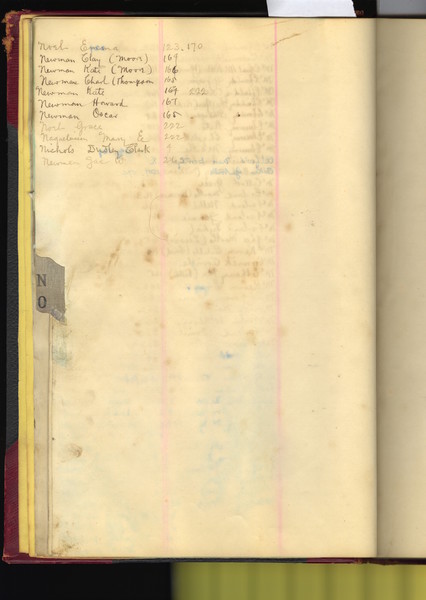 Noah Emma 123, 170
Newman Clay (Moors) 169
Newman Kate (Moors) 166
Newman Charl (Thompson 165
Newman Kate 169 222
Newman Howard 167
Newman Oscar 165
Noah Grace 202
Mary E 202
Nichols Dudley Clark 9
Newman
N
O